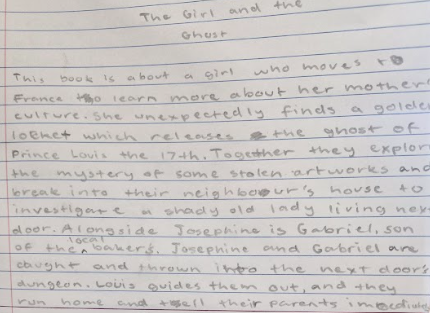 The Girl and the
Ghost
This book is about a girl who moves to
France to learn more about her mother
culture. She unexpectedly finds a golde
locket which releases the ghost of
Prince Louis the 17th. Together they explor
the mystery of some stolen artworks and
break into their neighbour's house to
investigate a shady old lady living nex
door. Alongside Josephine is Gabriel, son
of the local bakers. Josephine and Gabriel are
caught and thrown into the next door's
dungeon. Louis guides them out, and they
run home and tell their parents immediate